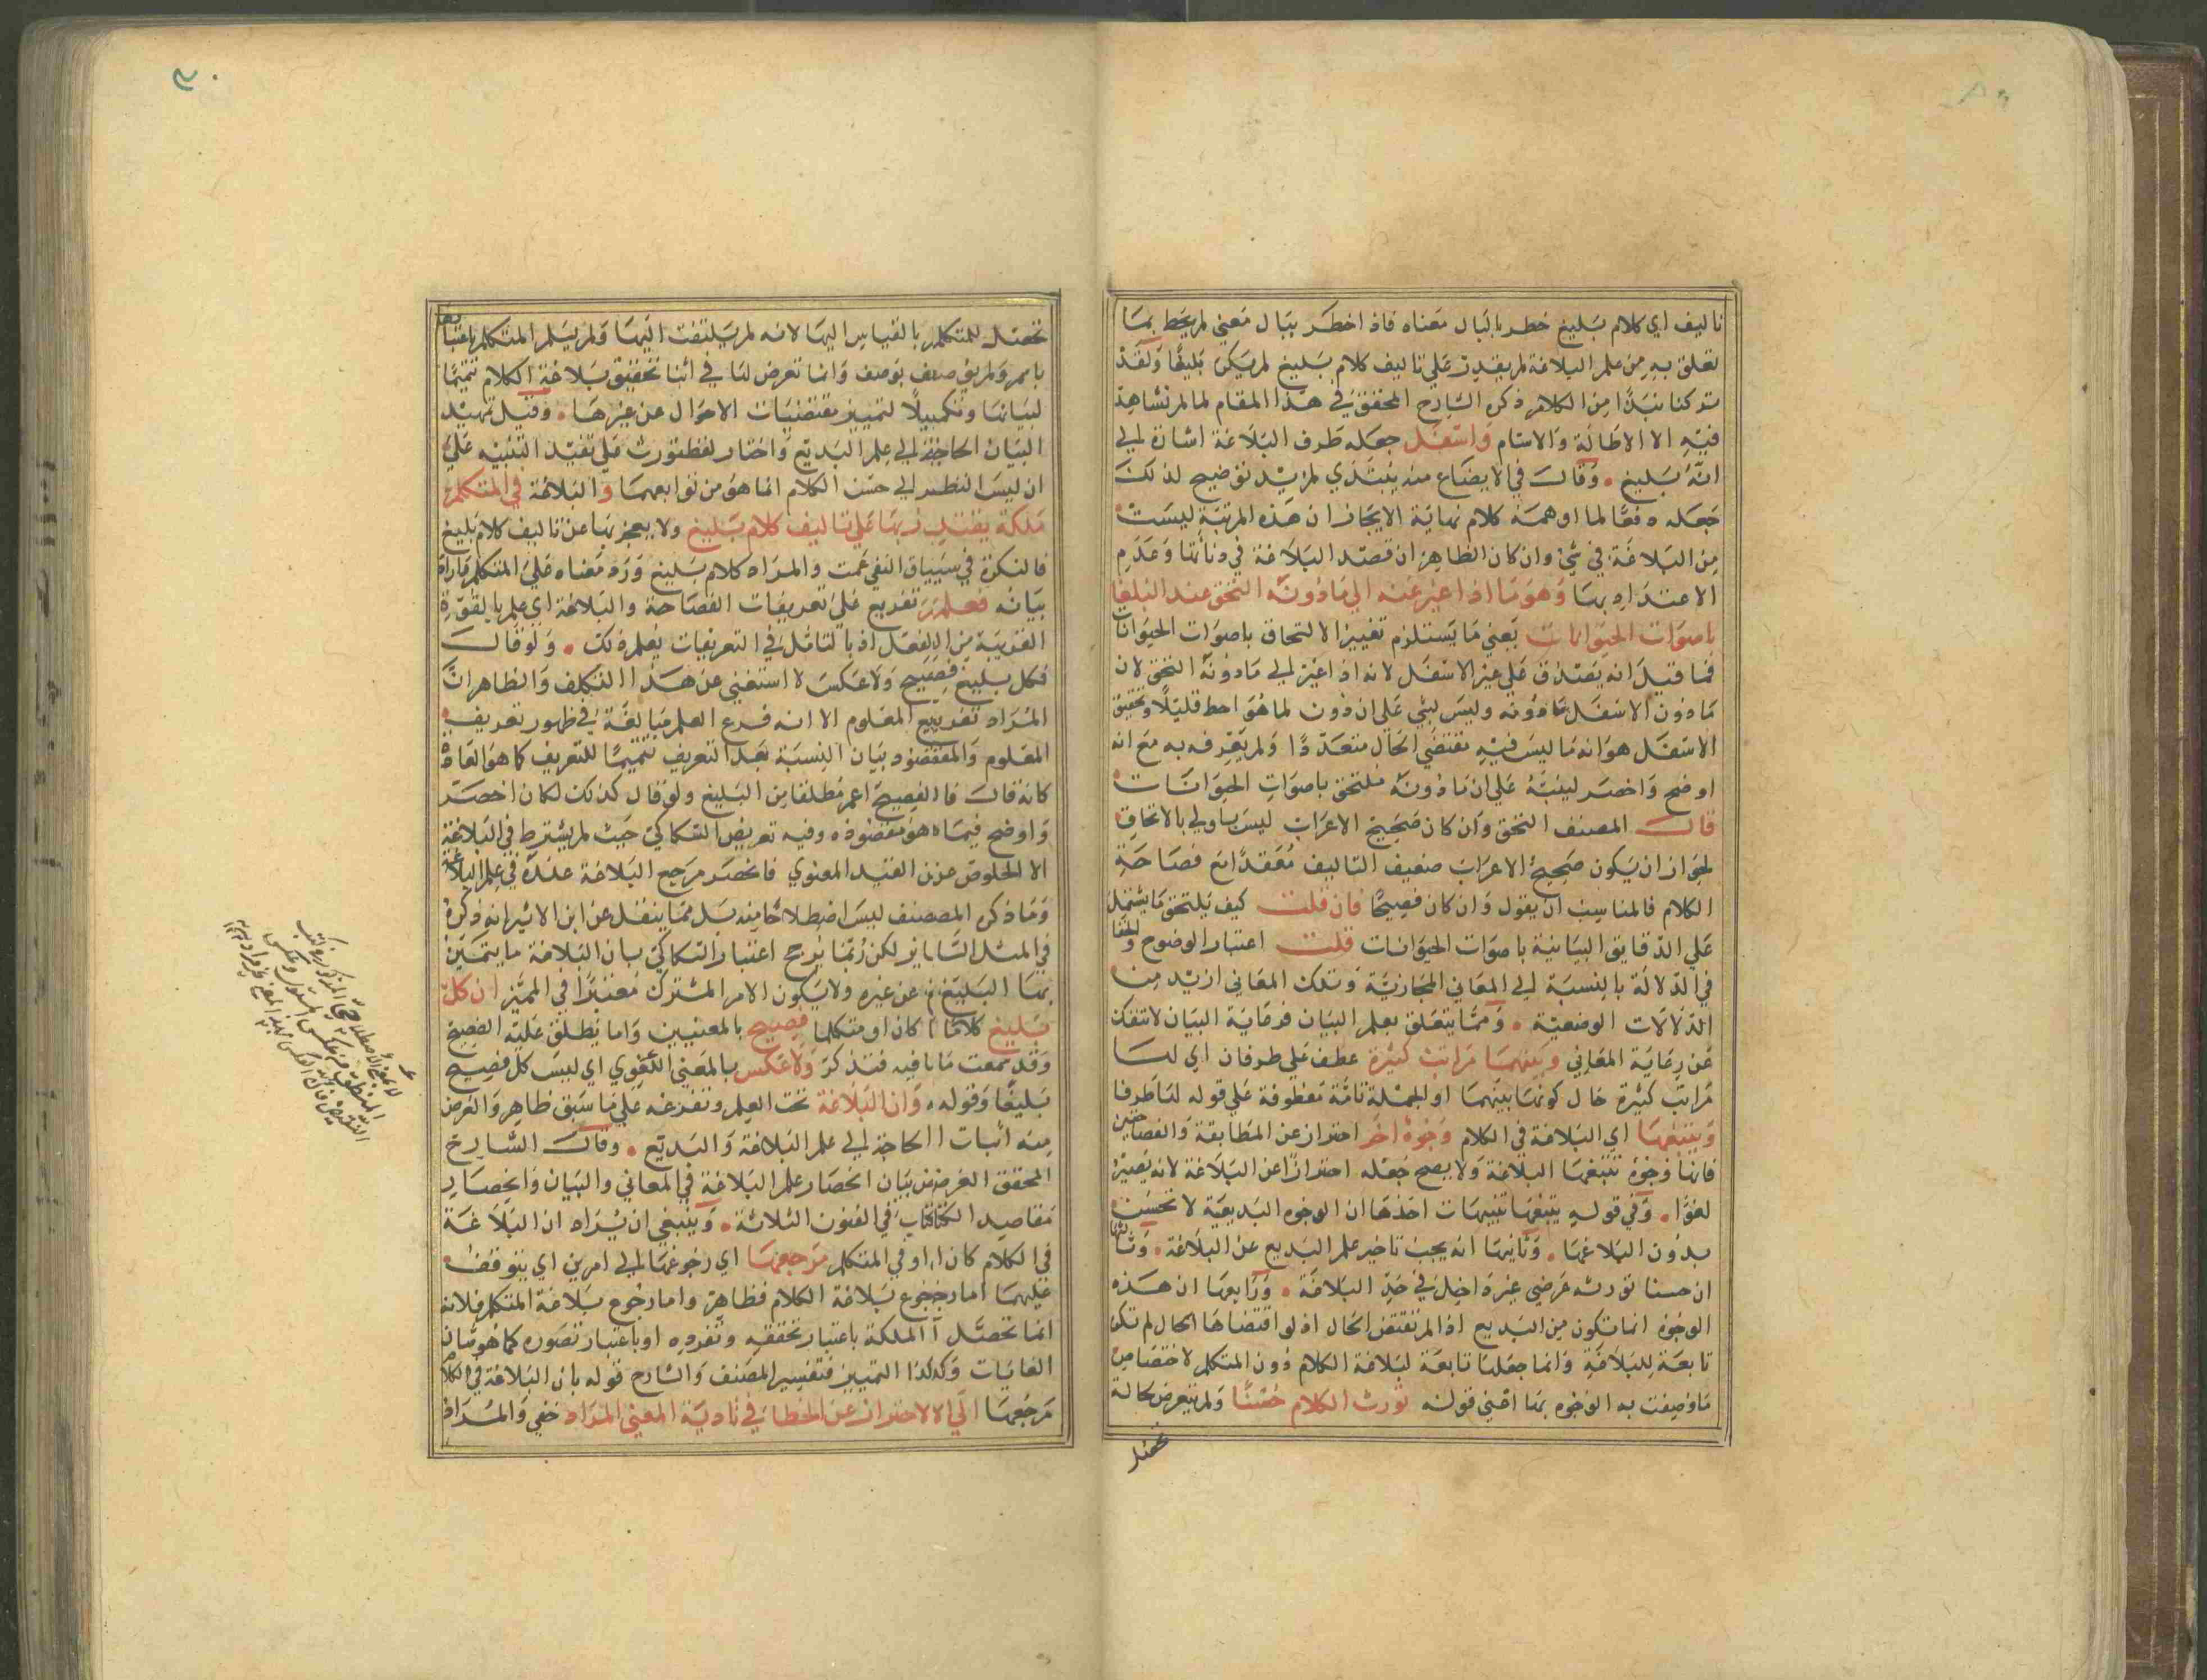 تاليف اي كلام بليغ خطر بالبال معناه فاذا خطر ببال معنى لم يحط بما
تعلق به من علم البلاغة لم يقدر على تاليف كلام بليغ لم يكن بليغا ولقد
تركنا نبذا من الكلام ذكره الشارح المحقق في هذا المقام لما لم نشاهد
فيه الا الاطالة والاسام واسفل جعله طرف البلاغة اشارة الى
انه بليغ وقال في الايضاح منه يبتدي لمزيد توضيح لذلك
جعله دفعا لما اوهمه كلام نهاية الايجاز ان هذه المرتبة ليست
من البلاغة في شئ وان كان الظاهر ان قصد البلاغة في دناتها وعدم
الاعتداد بها وهو ما اذا غير عنه الى ما دونه التحق عند البلغا
باصوات الحيوانات يعني ما يستلزم تغيير الالتحاق باصوات الحيوانات
فما قيل انه يصدق على غير الاسفل لانه اذا غير الى ما دونه التحق لان
ما دون الاسفل ما دونه وليس لشي على ان دون لما هو احط قليلا وتحقيق
الاسفل هو انه ما ليس فيه مقتضى الحال متعددا ولم يعرفه به مع انه
اوضح واخصر لينبه على ان ما دونه ملتحق باصوات الحيوانات
قال المصنف التحق وان كان صحيح الاعراب ليس باولى بالالتحاق
لجواز ان يكون صحيح الاعراب ضعيف التاليف معقدا مع فصاحة
الكلام فالمناسب ان يقول وان كان فصيحا فان قلت كيف يلتحق ما يشتمل
على الدقايق البيانية باصوات الحيوانات قلت اعتبار الوضوح والخفا
في الدلالة بالنسبة الى المعاني المجازية وتلك المعاني ازيد من
الدلالات الوضعية ومما يتعلق بعلم البيان فرعاية البيان لا تنفك
عن رعاية المعاني وبينهما مراتب كثيرة عطف على طرفان اي لها
مراتب كثيرة حال كونها بينهما او الجملة تامة معطوفة على قوله لها طرفان
ويتبعها اي البلاغة في الكلام وجوه اخر احتراز عن المطابقة والفصاحة
فانها وجوه تتبعها البلاغة ولا يصح جعله احترازا عن البلاغة لانه يصير
لغوا وفي قوله يتبعها تنبيهات احدها ان الوجوه البديعية لا تحسن
بدون البلاغة وثانيها انه يجب تاخير علم البديع عن البلاغة وثالثها
ان حسنا تورثه عرضي غير داخل في حد البلاغة ورابعها ان هذه
الوجوه انما تكون من البديع اذا لم تقتض الحال اذ لو اقتضاها الحال لم تكن
تابعة للبلاغة وانما جعلها تابعة لبلاغة الكلام دون المتكلم لاختصاص
ما وصفت به الوجوه بها اعني قوله تورث الكلام حسنا ولم يتعرض لحالة
تحصل
تحصل للمتكلم بالقياس اليها لانه لم يلتفت اليها ولم يسلم المتكلم باعتبارها
باسم ولم يوصف بوصف وانما تعرض لها في اثنا تحقيق بلاغة الكلام تتميما
لبيانها وتكميلا لتمييز مقتضيات الاحوال عن غيرها وقيل تمهيد
البيان الحاجة الى علم البديع واختار لفظ تورث على تفيد التنبيه على
ان ليس النظر الى حسن الكلام انما هو من توابعها والبلاغة في المتكلم
ملكة يقتدر بها على تاليف كلام بليغ ولا يعجز بها عن تاليف كلام بليغ
فالنكرة في سياق النفي عمت والمراد كلام بليغ ورد معناه على المتكلم واراد
بيانه فعلم تفريع على تعريفات الفصاحة والبلاغة اي علم بالقوة
القريبة من الفعل اذ بالتامل في التعريفات يعلم ذلك ولو قال
فكل بليغ فصيح ولا عكس لاستغنى عن هذا التكلف والظاهر ان
المراد تفريع المعلوم الا انه فرع العلم مبالغة في ظهور تعريف
المعلوم والمقصود بيان النسبة بعد التعريف تتميما للتعريف كما هو العادة
كانه قال فالفصيح اعم مطلقا من البليغ ولو قال كذلك لكان اخصر
واوضح فيما هو مقصوده وفيه تعريض السكاكي حيث لم يشترط في البلاغة
الا الخلوص عن القيد المعنوي فانحصر مرجع البلاغة عنده في علم البلاغة
وما ذكره المصنف ليس اصطلاحا منه بل مما ينقل عن ابن الاثير انه ذكره
في المثل الساير لكن ربما يرجح اعتبار السكاكي بان البلاغة ما يتميز
بها البليغ عن غيره ولا يكون الامر المشترك معتبرا في المميز ان كل
بليغ كلاما كان او متكلما فصيح بالمعنيين واما يطلق عليه الفصيح
وقد سمعت ما فيه فتذكر ولا عكس بالمعني اللغوي اي ليس كل فصيح
بليغا وقوله وان البلاغة تحت العلم وتفرعه على ما سبق ظاهر والغرض
منه اثبات الحاجة الى علم البلاغة والبديع وقال الشارح
المحقق الغرض من بيان انحصار علم البلاغة في المعاني والبيان وانحصار
مقاصد الكتاب في الفنون الثلاثة وينبغي ان يراد ان البلاغة
في الكلام كان او في المتكلم مرجعها اي رجوعها الى امرين اي يتوقف
عليهما اما رجوع بلاغة الكلام فظاهر واما رجوع بلاغة المتكلم فلانه
انما تحصل الملكة باعتبار تحققه وتفرده او باعتبار تصوره كما هو شان
الغايات وكذا التمييز فتفسير المصنف والشارح قوله بان البلاغة في الكلام
مرجعها الى الاحتراز عن الخطا في تادية المعنى المراد خفي والمراد